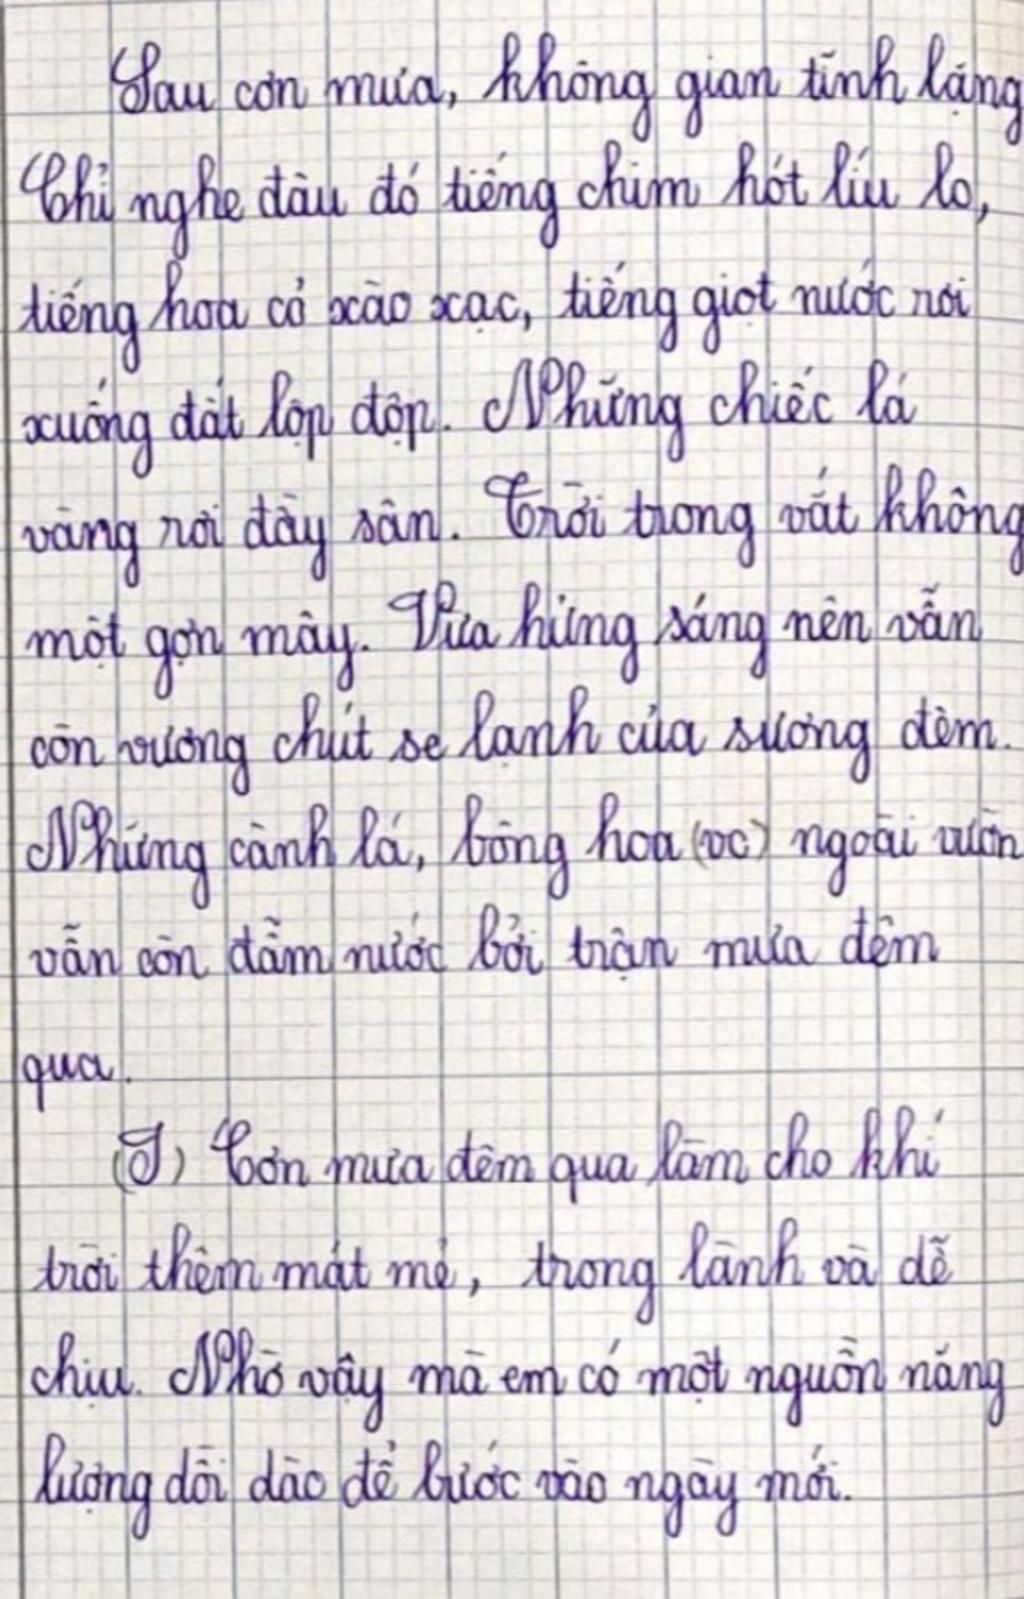 Sau cơn mưa, không gian tĩnh lặng
Chỉ nghe đâu đó tiếng chim hót líu lo,
tiếng hoa cỏ xào xạc, tiếng giọt nước rơi
xuống đất lộp độp. Những chiếc lá
vàng rơi đầy sân. Trời trong vắt không
một gợn mây. Vừa hửng sáng nên vẫn
còn vương chút se lạnh của sương đêm.
Những cành lá, bông hoa (vc) ngoài vườn
vẫn còn đẫm nước bởi trận mưa đêm
qua.
(I) Cơn mưa đêm qua làm cho khí
trời thêm mát mẻ, trong lành và dễ
chịu. Nhờ vậy mà em có một nguồn năng
lượng dồi dào để bước vào ngày mới.